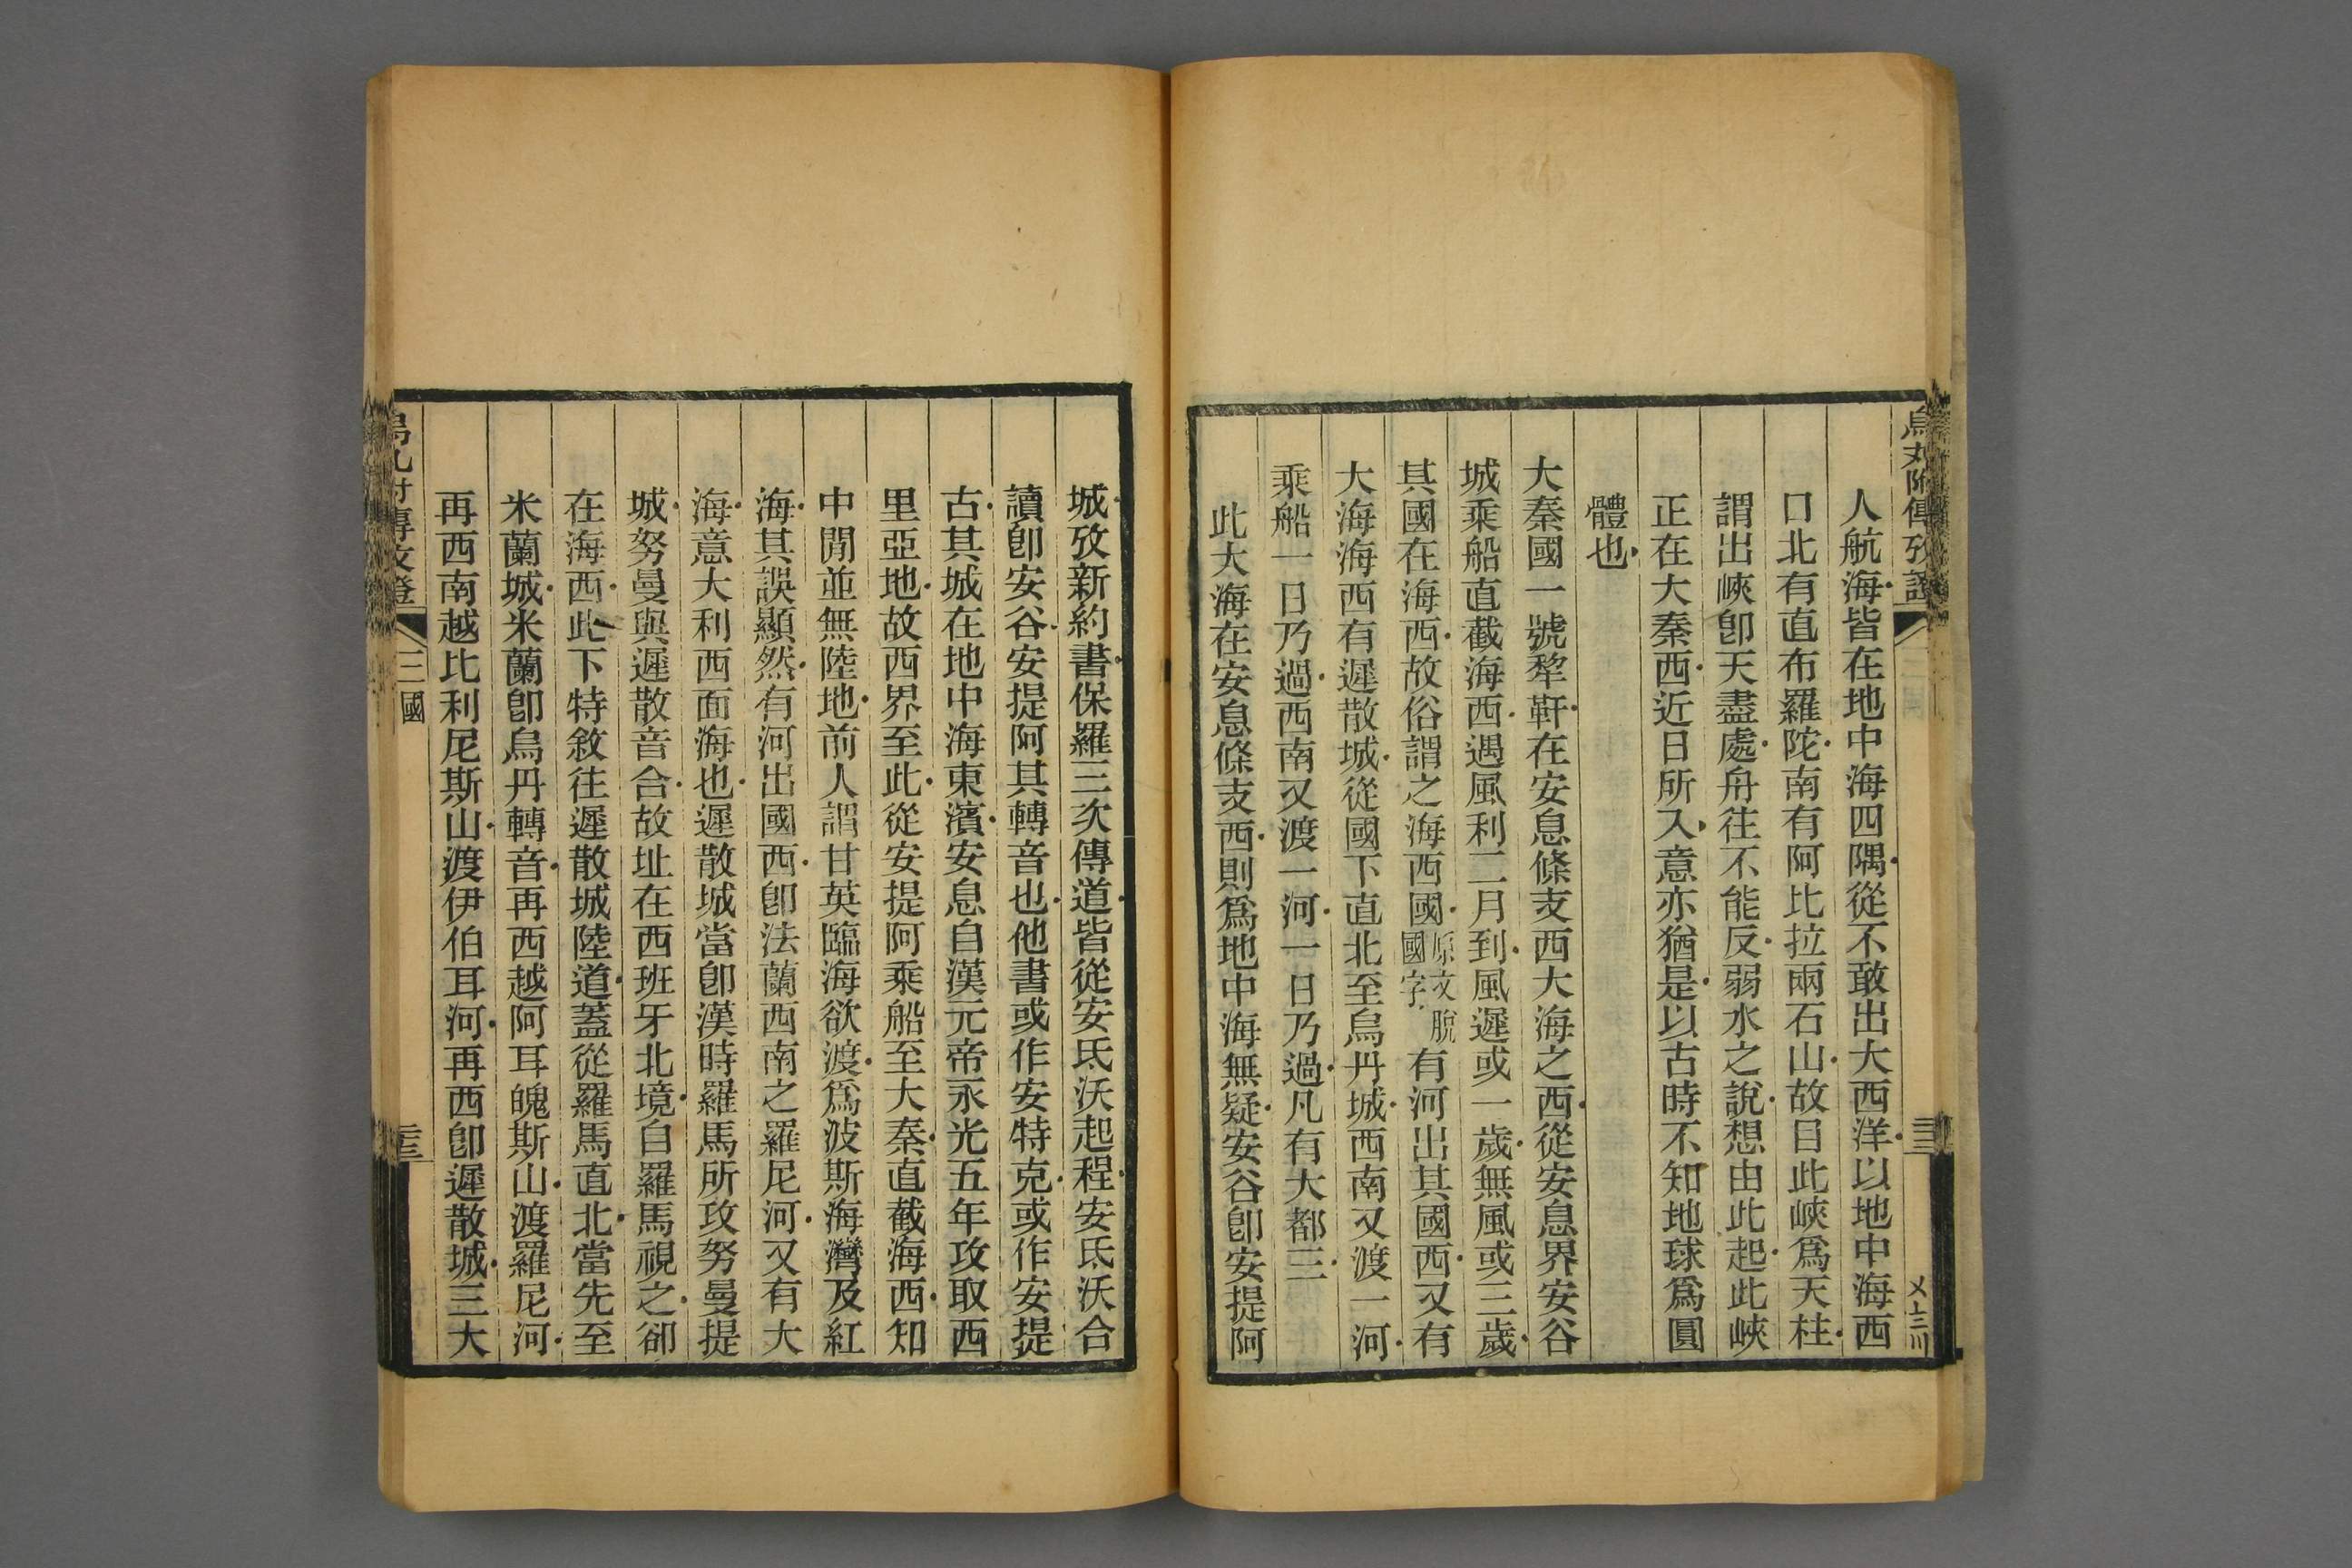 烏丸附傳攷證
人航海皆在地中海四隅從不敢出大西洋以地中海西
口北有直布羅陀南有阿比拉兩石山故目此峽爲天柱
謂出峽卽天盡處舟往不能反弱水之說想由此起此峽
正在大秦西近日所入意亦猶是以古時不知地球爲圓
體也
大秦國一號犂靬在安息條支西大海之西從安息界安谷
城乘船直截海西遇風利二月到風遲或一歲無風或三歲
其國在海西故俗謂之海西國原文脫國字有河出其國西又有
大海海西有遲散城從國下直北至烏丹城西南又渡一河
乘船一日乃過西南又渡一河一日乃過凡有大都三
此大海在安息條支西則爲地中海無疑安谷卽安提阿
城攷新約書保羅三次傳道皆從安氐沃起程安氐沃合
讀卽安谷安提阿其轉音也他書或作安特克或作安提
古其城在地中海東濱安息自漢元帝永光五年攻取西
里亞地故西界至此從安提阿乘船至大秦直截海西知
中閒並無陸地前人謂甘英臨海欲渡爲波斯海灣及紅
海其誤顯然有河出國西卽法蘭西南之羅尼河又有大
海意大利西面海也遲散城當卽漢時羅馬所攻努曼提
城努曼與遲散音合故址在西班牙北境自羅馬視之卻
在海西此下特敘往遲散城陸道蓋從羅馬直北當先至
米蘭城米蘭卽烏丹轉音再西越阿耳魄斯山渡羅尼河
再西南越比利尼斯山渡伊伯耳河再西卽遲散城三大
烏丸附傳攷證
三國